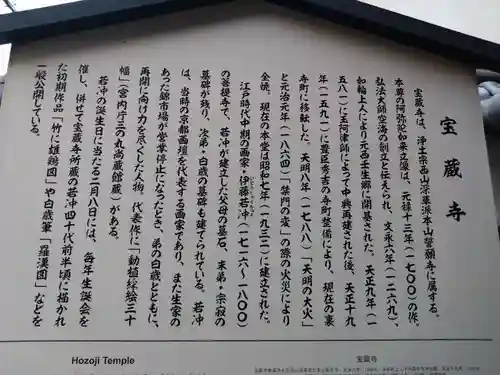 宝蔵寺
宝蔵寺は、浄土宗西山深草派本山誓願寺に属する。
本尊の阿弥陀如来立像は、元禄十三年（一七〇〇）の作。
弘法大師空海の創立と伝えられ、文永六年（一二六九）、
如輪上人により元西壬生郷に開基された。天正九年（一
五八一）に玉阿律師によって中興再建された後、天正十九
年（一五九一）に豊臣秀吉の寺町整備により、現在の裏
寺町に移転した。天明八年（一七八八）「天明の大火」
と元治元年（一八六四）「禁門の変」の際の火災により
全焼。現在の本堂は昭和七年（一九三二）に建立された。
江戸時代中期の画家・伊藤若冲（一七一六～一八〇〇）
の菩提寺で、若冲が建立した父母の墓石、末弟・宗寂の
墓碑が残り、次弟・白歳の墓碑も建てられている。若冲
は、当時の京都画壇を代表する画家であり、また生家の
あった錦市場が営業停止になったとき、弟の白歳とともに、
再開に向け力を尽くした人物。代表作に「動植綵絵三十
幅」（宮内庁三の丸尚蔵館蔵）がある。
若冲の誕生日に当たる二月八日には、毎年生誕会を
催し、併せて宝蔵寺所蔵の若冲四十代前半頃に描かれ
た初期作品「竹に雄鶏図」や白歳筆「羅漢図」などを
一般公開している。
Hozoji Temple
宝蔵寺